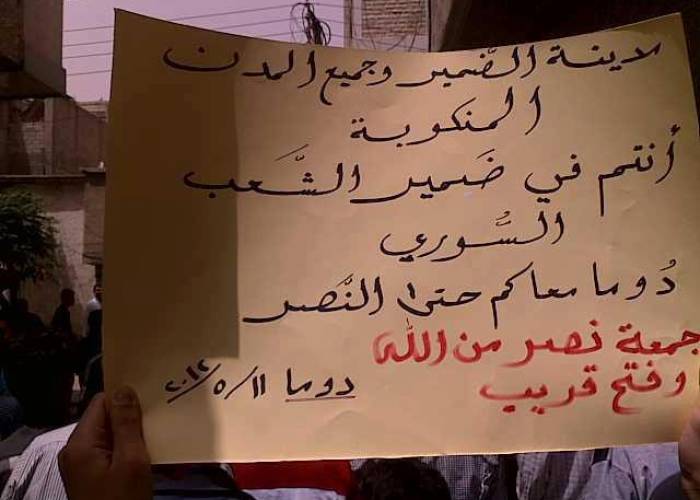 مدينة الضَّمير وجميع المدن
المنكوبة
أنتم في ضَمير الشَّعب
السُّوري
دُوما معاكم حتى النَّصر
جمعة نصر من الله
وفتح قريب
دوما ٢٠١٢/٥/١١